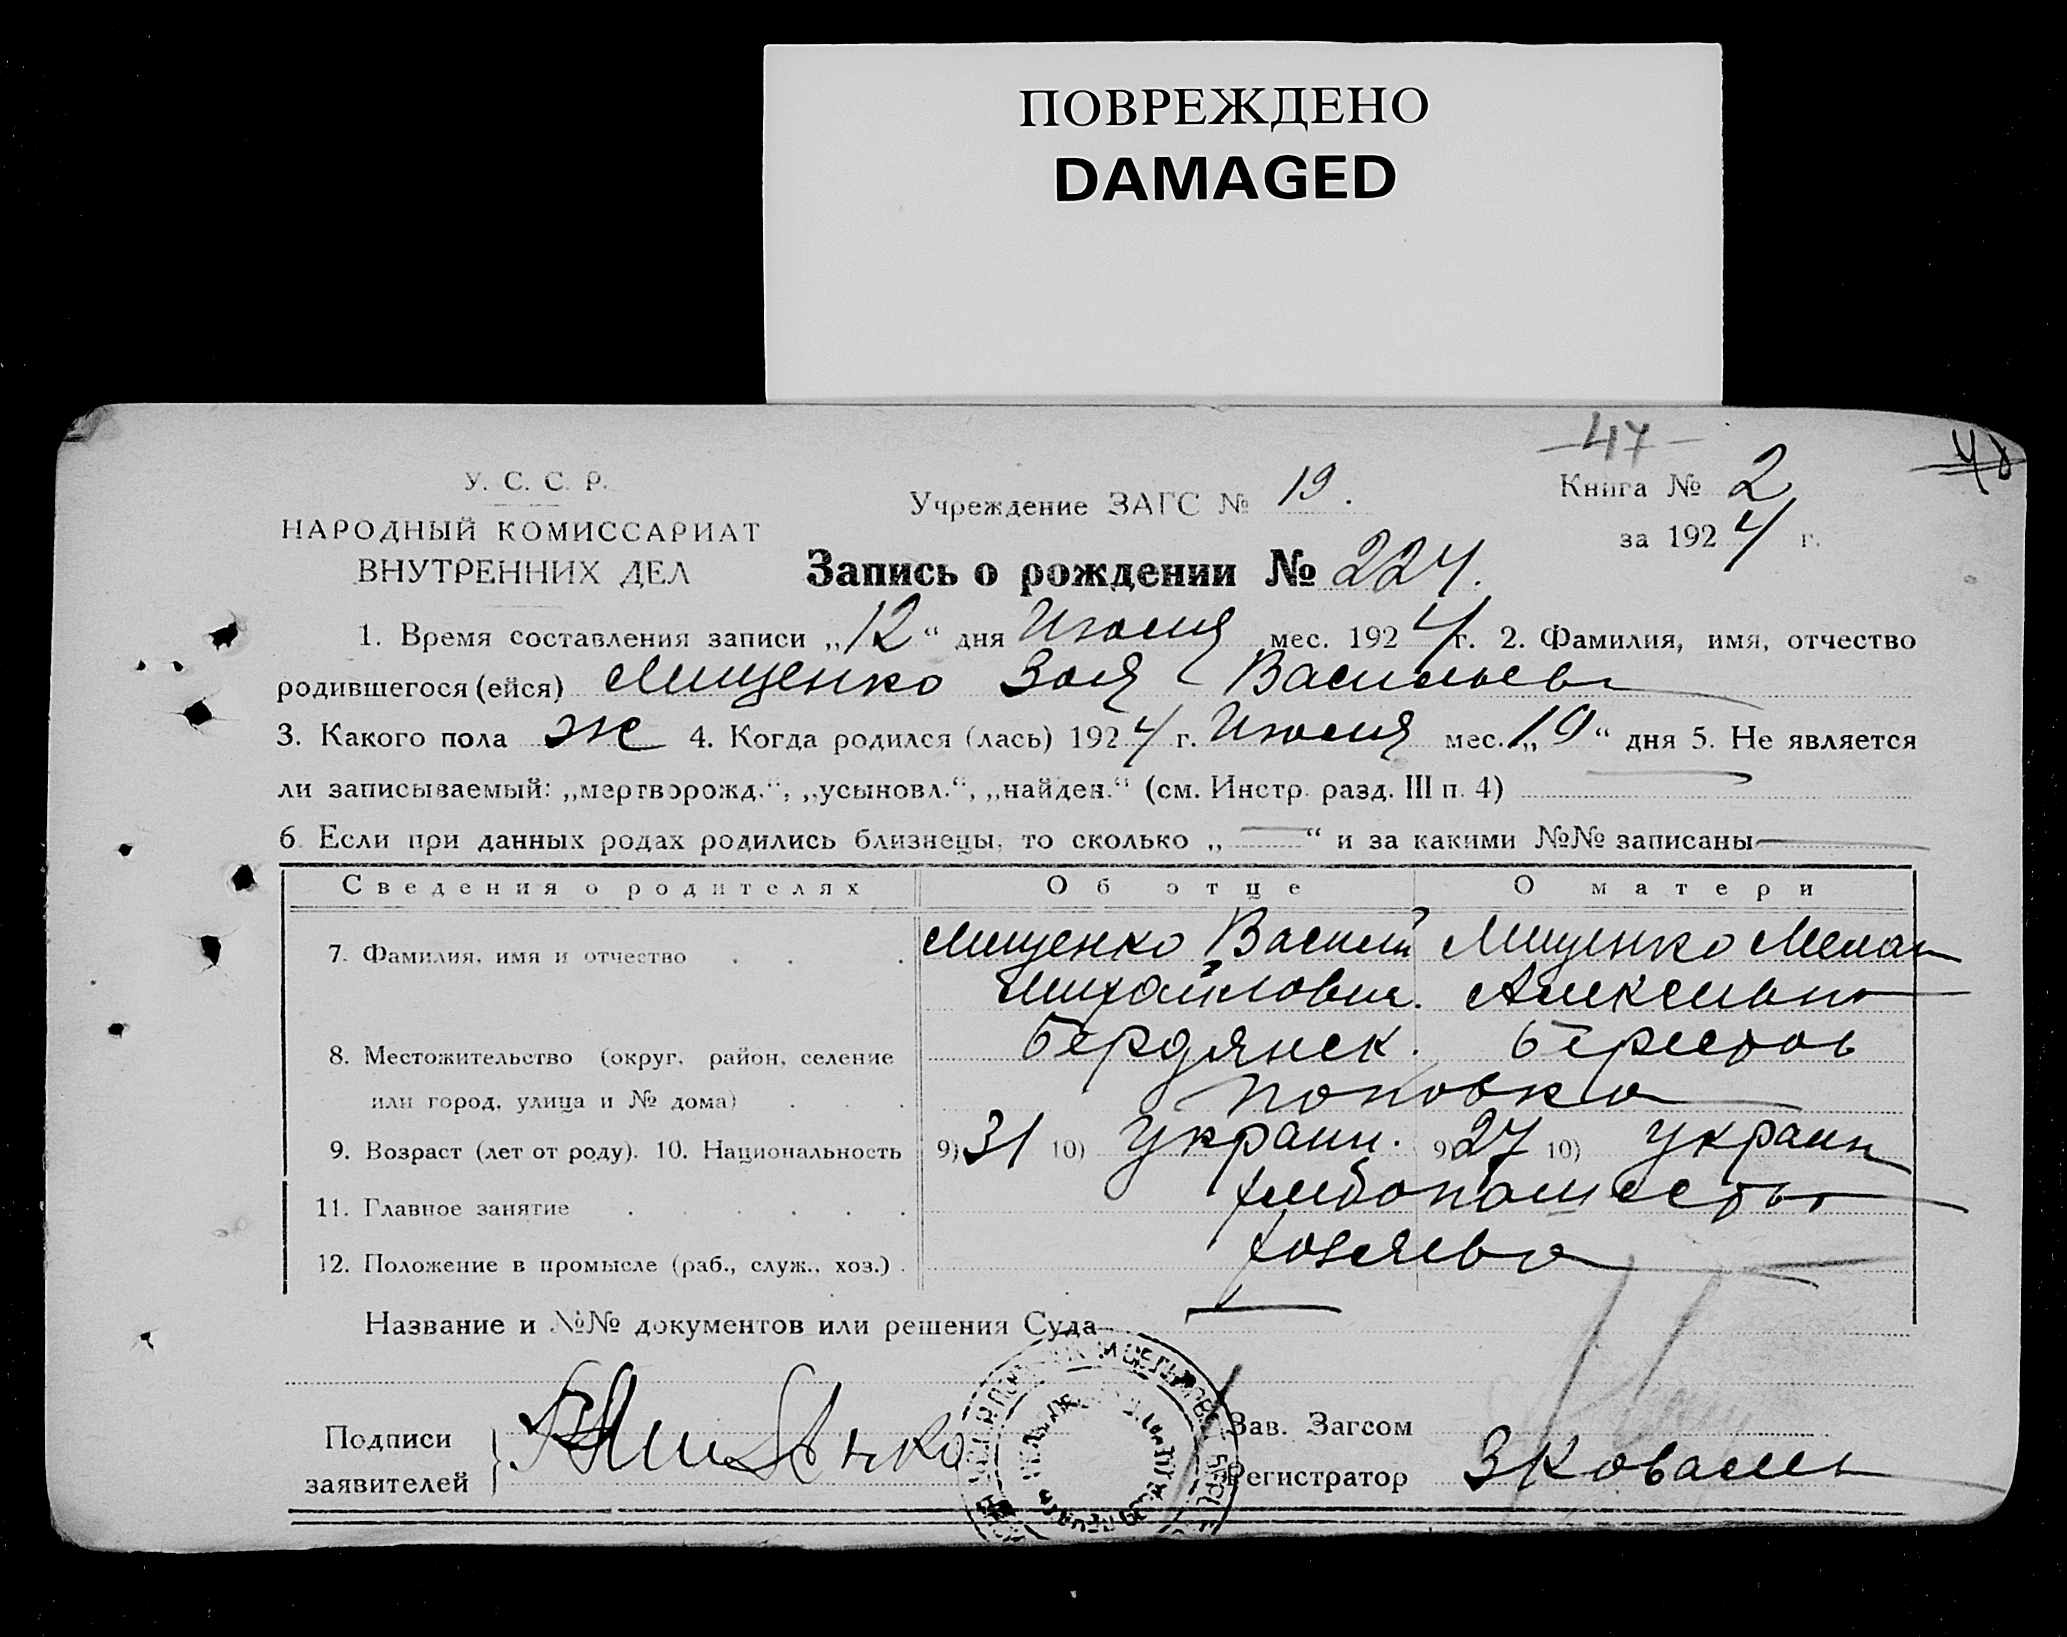 ПОВРЕЖДЕНО
DAMAGED
47
У. С. С. Р.
НАРОДНЫЙ КОМИССАРИАТ
ВНУТРЕННИХ ДЕЛ
Учреждение ЗАГС № 19.
Книга № 2
за 1924 г.
Запись о рождении № 224.
1. Время составления записи „12“ дня Июля мес. 1924 г. 2. Фамилия, имя, отчество
родившегося (ейся) Мищенко Зоя Васильев
3. Какого пола ж 4. Когда родился (лась) 1924 г. Июля мес. „19“ дня 5. Не является
ли записываемый: „мертворожд.“, „усыновл.“, „найден.“ (см. Инстр. разд. III п. 4)
6. Если при данных родах родились близнецы, то сколько „—“ и за какими №№ записаны —
Сведения о родителях Об отце О матери
7. Фамилия, имя и отчество Мищенко Василий Мищенко Мелан
Михайлович. Алексеевн
8. Местожительство (округ, район, селение Бердянск. Берестов
или город, улица и № дома) Поповка
9. Возраст (лет от роду). 10. Национальность 9) 31 10) Украин. 9) 27 10) Украин
11. Главное занятие хлебопашество
12. Положение в промысле (раб., служ., хоз.) хозяева
Название и №№ документов или решения Суда
Подписи
заявителей
Зав. Загсом
Регистратор ЗКоваль